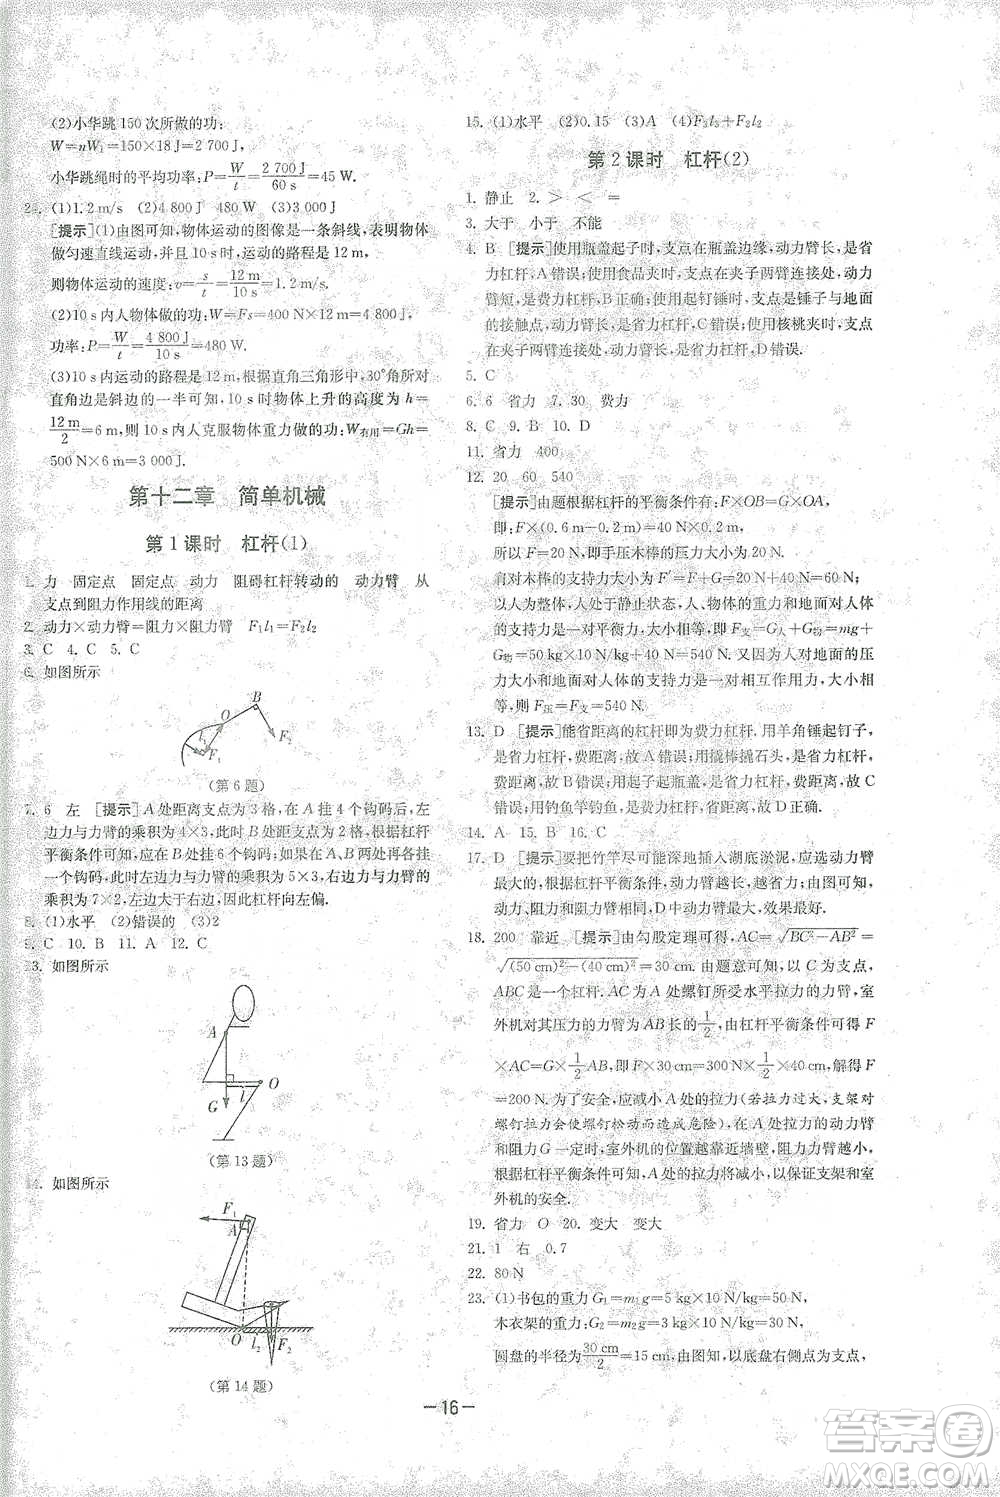 (2)小华跳150次所做的功:
W=nW₁=150×18 J=2 700 J
小华跳绳时的平均功率:P=W/t=2 700 J/60 s=45 W.
(1)1.2 m/s (2)4 800 J 480 W (3)3 000 J
[提示](1)由图可知,物体运动的图像是一条斜线,表明物体
做匀速直线运动,并且10 s运动的路程是12 m,
则物体运动的速度:v=s/t=12 m/10 s=1.2 m/s.
(2)10 s内人物体做的功:W=Fs=400 N×12 m=4 800 J,
功率:P=W/t=4 800 J/10 s=480 W.
(3)10 s内运动的路程是12 m,根据直角三角形中,30°角所对
直角边是斜边的一半可知,10 s时物体上升的高度为 h=
12 m/2=6 m,则10 s内人克服物体重力做的功:W有用=Gh=
500 N×6 m=3 000 J.
第十二章 简单机械
第1课时 杠杆(1)
1. 力 固定点 固定点 动力 阻碍杠杆转动的 动力臂 从
支点到阻力作用线的距离
2. 动力×动力臂=阻力×阻力臂 F₁l₁=F₂l₂
3. C 4. C 5. C
6. 如图所示
B
O
l₁
F₁
F₂
(第6题)
7. 6 左 [提示]A处距离支点为3格,在A挂4个钩码后,左
边力与力臂的乘积为4×3,此时B处距支点为2格,根据杠杆
平衡条件可知,应在B处挂6个钩码;如果在A、B两处再各
挂一个钩码,此时左边力与力臂的乘积为5×3,右边力与力臂的
乘积为7×2,左边大于右边,因此杠杆向左偏.
8. (1)水平 (2)错误的 (3)2
9. C 10. B 11. A 12. C
13. 如图所示
A
O
G
l
(第13题)
14. 如图所示
F₁
A
O
l₂
F₂
(第14题)
15. (1)水平 (2)0.15 (3)A (4)F₃l₃+F₂l₂
第2课时 杠杆(2)
1. 静止 2. > < =
3. 大于 小于 不能
4. B [提示]使用瓶盖起子时,支点在瓶盖边缘,动力臂长,是省
力杠杆,A错误;使用食品夹时,支点在夹子两臂连接处,动力
臂短,是费力杠杆,B正确;使用起钉锤时,支点是锤子与地面
的接触点,动力臂长,是省力杠杆,C错误;使用核桃夹时,支点
在夹子两臂连接处,动力臂长,是省力杠杆,D错误.
5. C
6. 6 省力 7. 30 费力
8. C 9. B 10. D
11. 省力 400
12. 20 60 540
[提示]由题根据杠杆的平衡条件有:F×OB=G×OA,
即:F×(0.6 m-0.2 m)=40 N×0.2 m,
所以 F=20 N,即手压木棒的压力为20 N;
肩对木棒的支持力为 F′=F+G=20 N+40 N=60 N;
以人为整体,人处于静止状态,人和物体的重力和地面对人体
的支持力是一对平衡力,大小相等,即F支=G人+G物=mg+
G物=50 kg×10 N/kg+40 N=540 N.又因为人对地面的压力
和地面对人体的支持力是一对相互作用力,大小相
等,则F压=F支=540 N.
13. D [提示]能省距离的杠杆即为费力杠杆.用羊角锤起钉子,
是省力杠杆,费距离;故A错误;用撬棒撬石头,是省力杠杆,
费距离;故B错误;用起子起瓶盖,是省力杠杆,费距离,故C
错误;用钓鱼竿钓鱼,是费力杠杆,省距离.故D正确.
14. A 15. B 16. C
17. D [提示]要把竹竿尽可能深地插入湖底淤泥,应选动力臂
最大的,根据杠杆平衡条件,动力臂越长,越省力;由图可知,
动力、阻力和阻力臂相同时,D的动力臂最大.故选D.
18. 200 靠近 [提示]由勾股定理可得,AC=√(BC²-AB²)=
√((50 cm)²-(40 cm)²)=30 cm.由题意可知,以C为支点,
ABC是一个杠杆.AC为A处螺钉所受水平拉力的力臂,室
外机对其压力的力臂为AB长的1/2,由杠杆平衡条件可得 F
×AC=G×1/2AB,即F×30 cm=300 N×1/2×40 cm,解得 F=
200 N.为了安全,应减小A处的拉力(若拉力过大,支架对
螺钉的拉力会使螺钉松动而造成危险),在A处拉力的力臂
和阻力G一定时,室外机的位置越靠近墙壁,阻力力臂越小,
根据杠杆平衡条件可知,A处的拉力越小,以保证支架和室
外机的安全.
19. 省力 O 20. 变大 变大
21. 1 右 0.7
22. 80 N
23. (1)书包的重力G₁=m₁g=5 kg×10 N/kg=50 N,
木衣架的重力:G₂=m₂g=4 kg×10 N/kg=40 N,
圆盘的半径为30 cm/2=15 cm,由图知,以底盘右侧点为支点,
—16—
答案圈
MXQE.COM